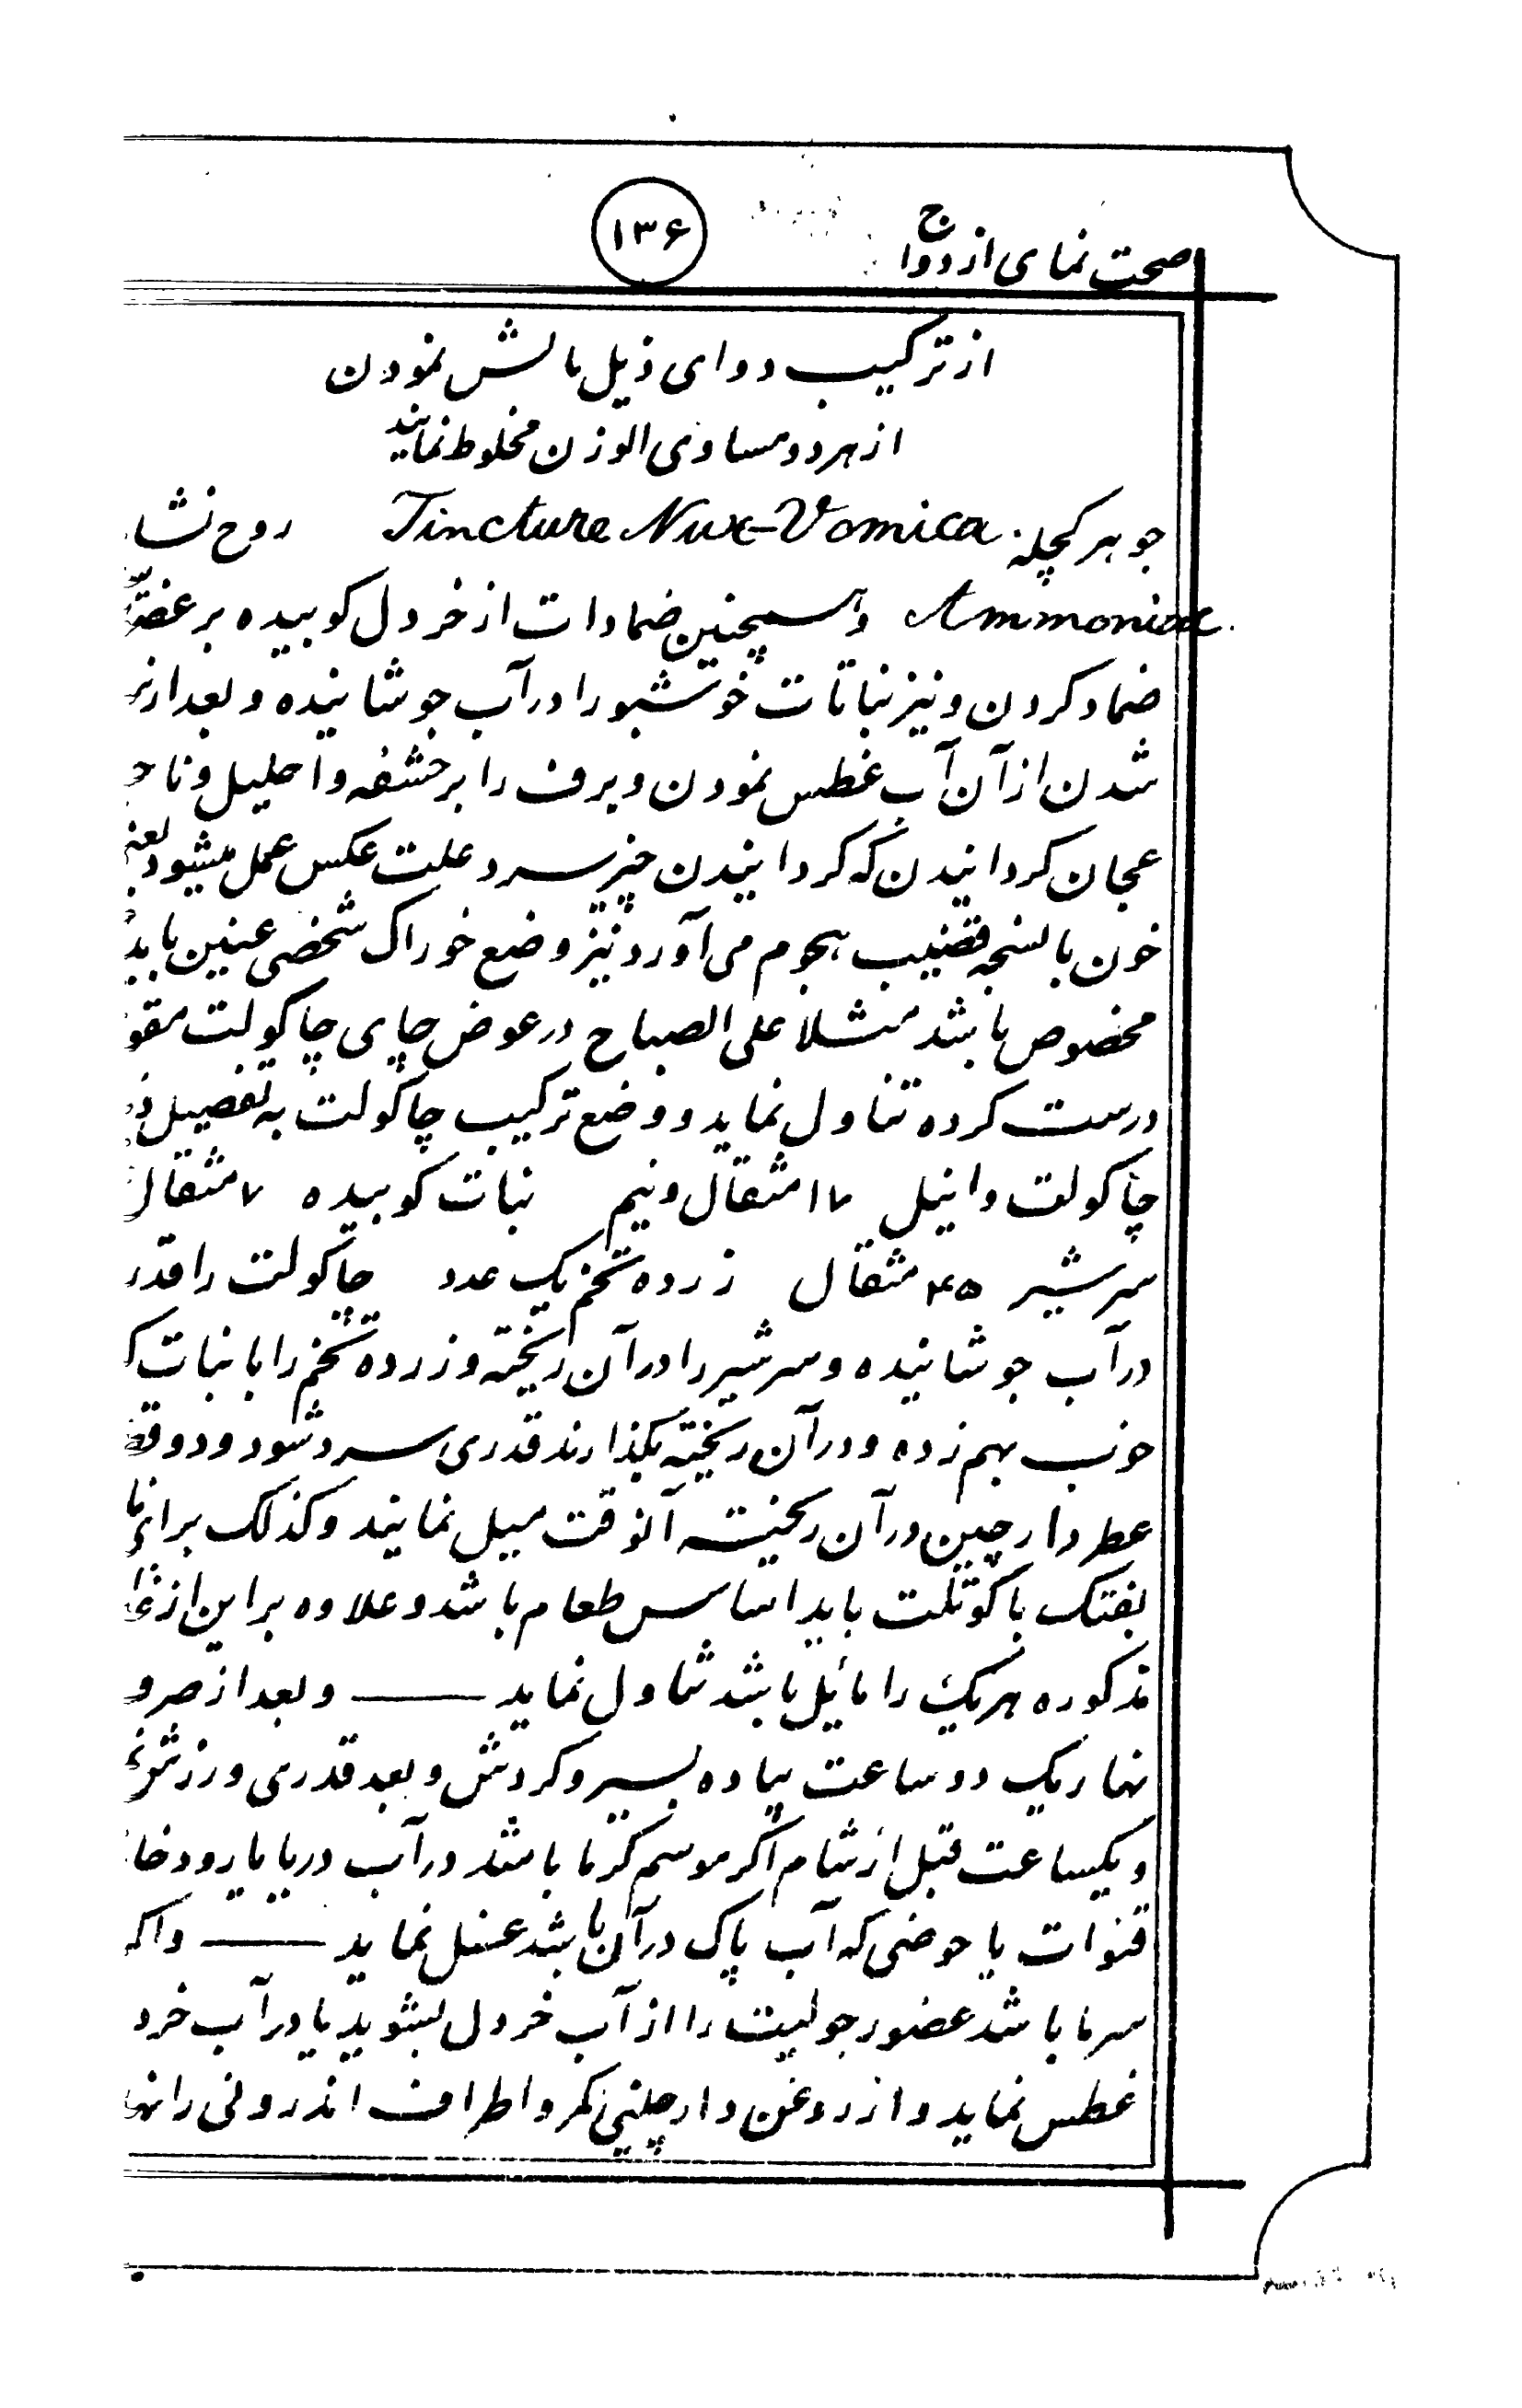 صحت نمای ازدواج
۱۳۶
از ترکیب دوای ذیل مالش نمودن
از هر دو مساوی الوزن مخلوط نمایند
جوهر کچله Tincture Nux-Vomica روح نشا
Ammoniac. و همچنین ضمادات از خردل کوبیده بر عضو
ضماد کردن و نیز نباتات خوشبو را در آب جوشانیده و بعد از
شدن از آن آب غطس نمودن و برف را بر حشفه و احلیل و نا
عجان کردانیدن که کردانیدن چیز سرد علت عکس عمل میشود یعنی
خون بالنسجه قضیب هجوم می آورد و نیز وضع خوراک شخص عنین باید
مخصوص باشد مثلا علی الصباح در عوض چای چاکولت مقو
درست کرده تناول نماید و وضع ترکیب چاکولت به تفصیل
چاکولت وانیل ۱۷ مثقال و نیم نبات کوبیده ۷ مثقال
سرشیر ۴۵ مثقال زرده تخم یک عدد چاکولت را قدر
در آب جوشانیده و سرشیر را در آن ریخته و زرده تخم را با نبات
خوب بهم زده و در آن ریخته بکذارند قدری سرد شود و دو
عطر دارچین در آن ریخته آنوقت میل نمایند و کذلک برای
بفتک با کوتلت باید اساس طعام باشد و علاوه بر این از
مذکوره هر یک را مائل باشد تناول نماید —— و بعد از صرو
نهار یک دو ساعت پیاده بسیر و کردش و بعد قدری ورزش
و یکساعت قبل از شام اکر موسم کرما باشد در آب دریا یا رودخا
قنوات یا حوضی که آب پاک در آن باشد غسل نماید —— واکر
سرما باشد عضو رجولیت را از آب خردل بشوید یا در آب خرد
غطس نماید و از روغن دارچینی کمر و اطراف اندرونی